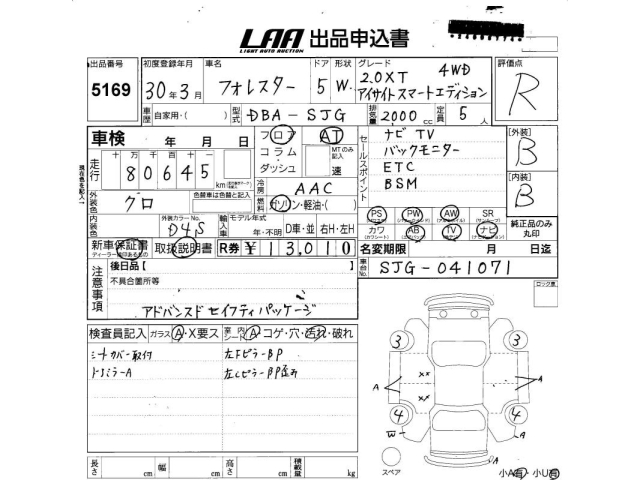 LAA 出品申込書
LIGHT AUTO AUCTION
出品番号 5169
初度登録年月 30年3月
車名 フォレスター
ドア 5 形状 W
グレード 2.0XT 4WD
アイサイトスマートエディション
評価点 R
車歴 自家用・( )
型式 DBA-SJG
排気量 2000 cc
定員 5 人
車検 年 月 日
フロア AT
コラム・ダッシュ
MTのみ記入 速
セールスポイント
ナビ TV
バックモニター
ETC
BSM
[外装] B
[内装] B
走行 十万千百十
80645 km
現在色を記入
外装色 グロ
色替車は色替と記入
冷房 AAC
燃料 ガソリン・軽油・( )
内装色
外装カラーNo. D4S
輸入車 モデル年式 年・不明 D車・並 右H・左H
PS PW AW SR
カワ AB TV ナビ
純正品のみ丸印
新車保証書 取扱説明書
R券 ¥13,010
名変期限 月 日迄
注意事項
後日品【
不具合箇所等
アドバンスド セイフティ パッケージ
車台No. SJG-041071
ロック車
検査員記入 ガラス A・X要ス 室内シート A コゲ・穴・汚れ・破れ
シートカバー取付 左Fピラー BP
ドアミラーA 左Cピラー BP歪み
3 3
A A
×× ××
4 4
W A
スペア
小A有・小U有
長さ cm 幅 cm 高さ cm 積載量 kg